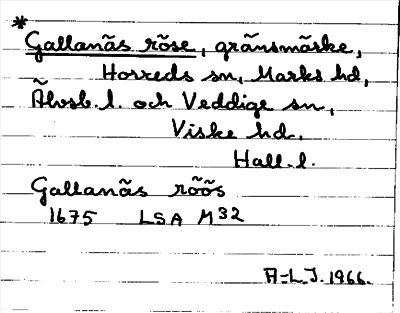 *
Gallanäs röse, gränsmärke,
Horreds sn, Marks hd,
Älvsb. l. och Veddige sn,
Viske hd.
Hall. l.
Gallanäs röös
1675 LSA M32
A-L.J. 1966.